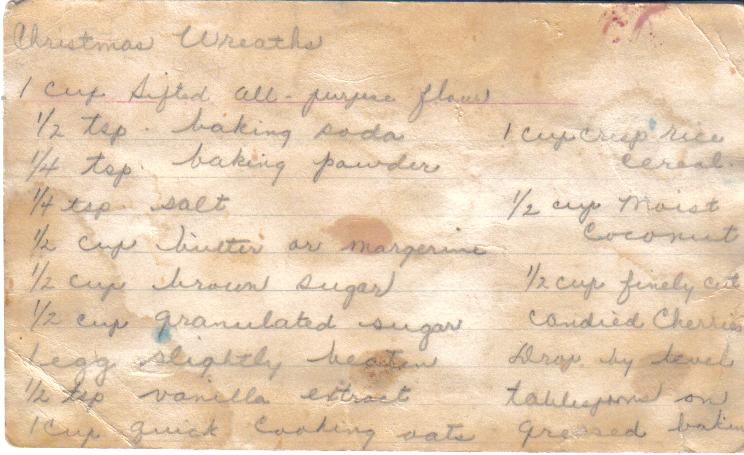 Christmas Wreaths
1 cup sifted all-purpose flour
1/2 tsp. baking soda
1/4 tsp. baking powder
1/4 tsp. salt
1/2 cup butter or margerine
1/2 cup brown sugar
1/2 cup granulated sugar
1 egg slightly beaten
1/2 tsp vanilla extract
1 cup quick cooking oats
1 cup crisp rice
cereal.
1/2 cup Moist
Coconut
1/2 cup finely cut
candied Cherries
Drop by level
tablespoons on
greased bakin